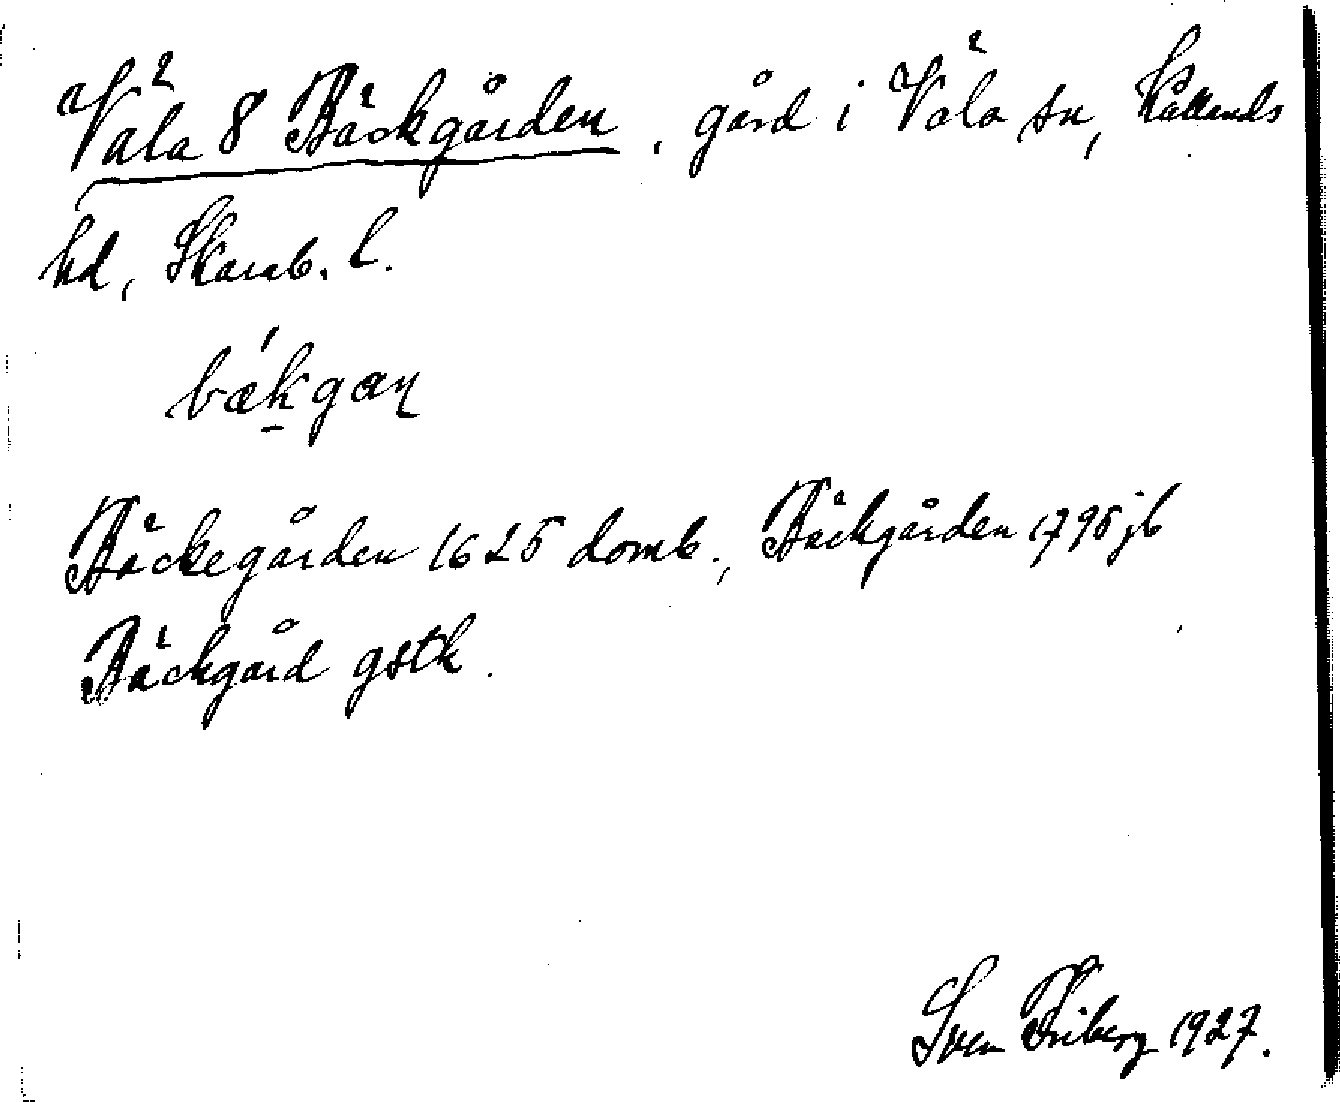 Väla 8 Bäckgården, gård i Väla sn, Kållands
hd, Skarab. l.
bǽk̲gaɳ
Bäckegården 1625 domb., Bäckgården 1795 jb
Bäckgård gstk.
Sven Friberg 1927.